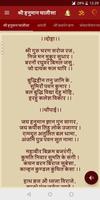 13:39
श्री हनुमान चालीसा
श्री हनुमान चालीसा
।।दोहा।।
श्री गुरु चरण सरोज रज,
निज मन मुकुर सुधार ।
बरनौं रघुवर बिमल जसु,
जो दायक फल चारि ।
बुद्धिहीन तनु जानि के,
सुमिरौं पवन कुमार ।
बल बुद्धि विद्या देहु मोहि,
हरहु कलेश विकार ।
।।चौपाई।।
जय हनुमान ज्ञान गुन सागर,
जय कपीस तिहुं लोक उजागर ।
रामदूत अतुलित बल धामा,
अंजनि पुत्र पवन सुत नामा ।
महाबीर बिक्रम बजरंगी,
कुमति निवार सुमति के संगी ।